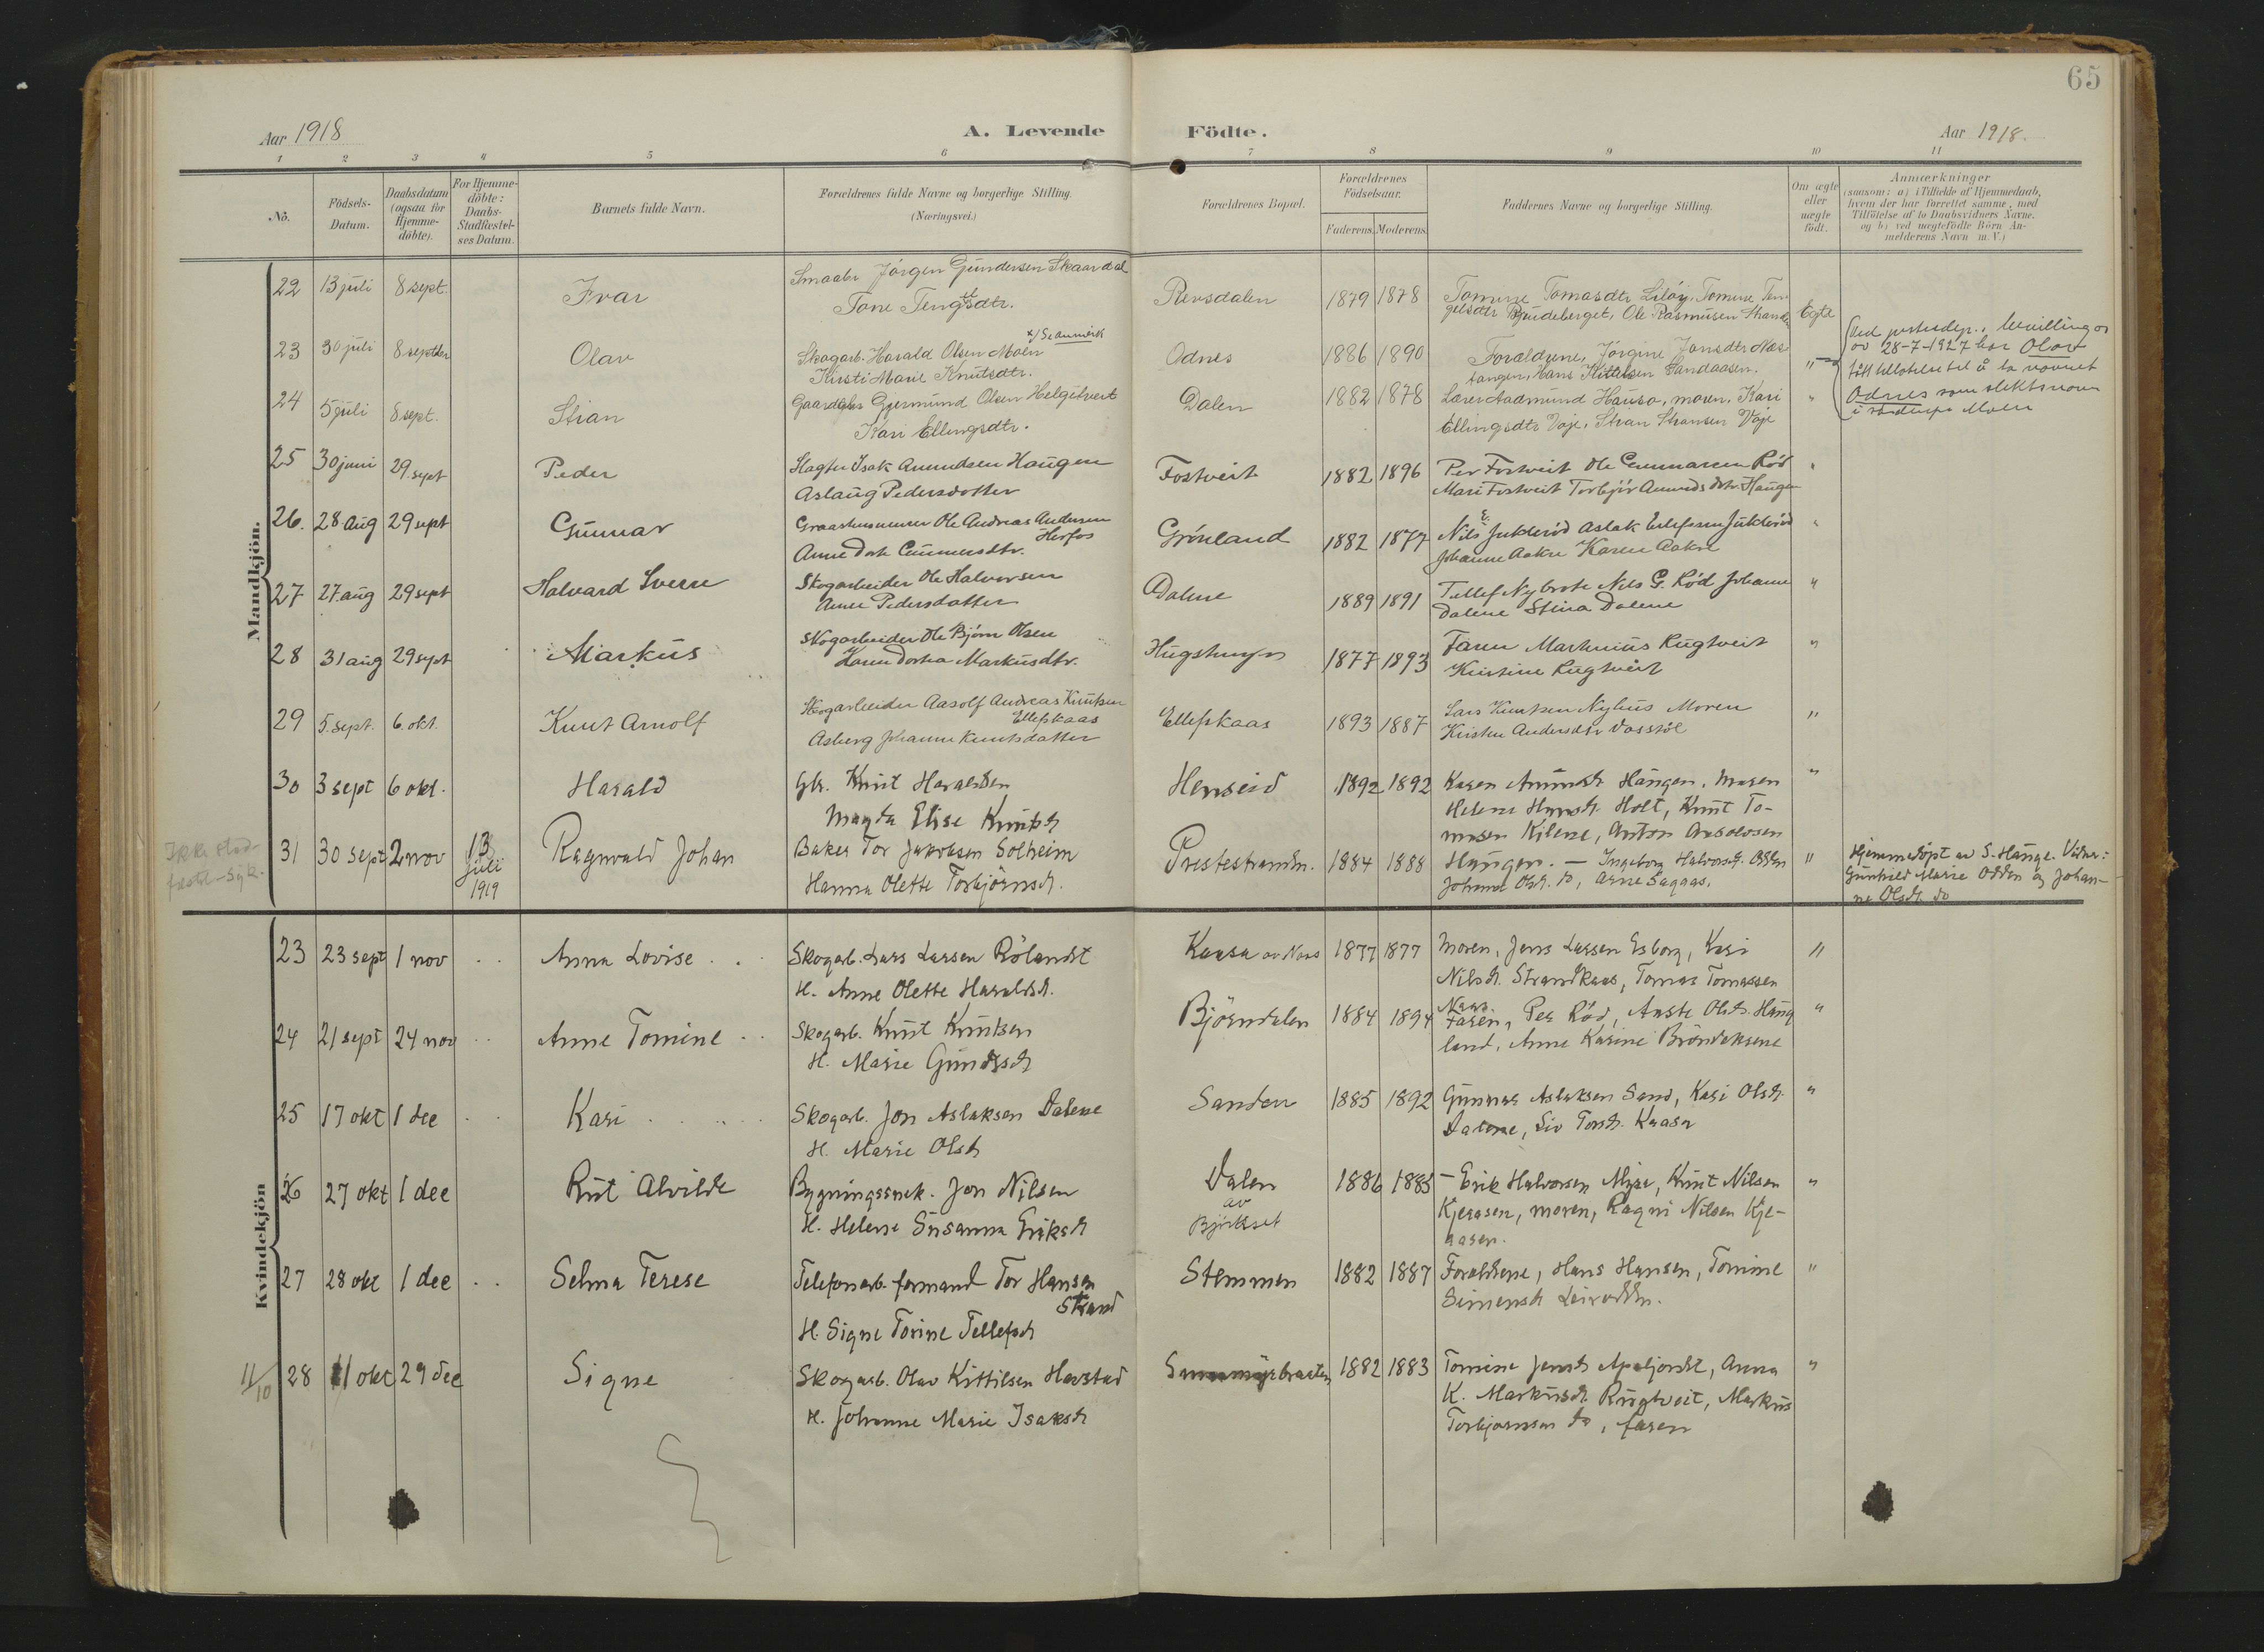 65
Aar 1918
A. Levende
Födte.
Aar 1918.
1 2 3 4 5 6 7 8 9 10 11
No.
Födsels-
Datum.
Daabsdatum
(ogsaa for
Hjemme-
döbte).
For Hjemme-
döbte:
Daabs-
Stadfæstel-
ses Datum.
Barnets fulde Navn.
Forældrenes fulde Navne og borgerlige Stilling.
(Næringsvei.)
Forældrenes Bopæl.
Forældrenes
Födselsaar.
Faderens. Moderens.
Faddernes Navne og borgerlige Stilling.
Om ægte
eller
uægte
födt.
Anmærkninger
(saasom: a) i Tilfælde af Hjemmedaab,
hvem der har forrettet samme, med
Tilföielse af to Daabsvidners Navne.
og b) ved uægtefödte Börn An-
melderens Navn m. V.)
Mandkjön.
22 13 juli 8 sept. Ivar Smaabr. Jörgen Gundersen Skaardal Rersdalen 1879 1878 Tomine Tomasdtr Tomine Ten- Egte
Tone Tengelsdtr. gelsdtr Ole Rasmusen
x) Se anmerk
23 30 juli 8 septbr Olav Skogarb. Harald Olsen Moen Odnes 1886 1890 Forældrene, Jörgine Jonsdtr Næs- "
Kirsti Marie Knutsdtr. tangen, Hans Kittilsen Sandaasen.
Ved justisdep.s bevilling
av 28-7-1927 har Olav
fått tillatelse til å ta navnet
Odnes som slektsnavn
i stedenfor Moen
24 5 juli 8 sept. Stian Gaardbr Gjermund Olsen Helgetveit Dalen 1882 1878 Lærer Aadmund Hauso, moren, Kari "
Kari Ellingsdtr. Ellingsdtr Voje, Stian Stiansen Voje
25 30 juni 29. sept Peder Slagter Isak Amundsen Haugen Fostveit 1882 1896 Per Fostveit Ole Gunnarsen Röd "
Aslaug Pedersdotter Mari Fostveit Torbjör Amundsdtr. Haugen
26. 28 aug 29 sept Gunnar Ole Andreas Andersen Grönland 1882 1877 Nils E. Jukleröd Aslak Jukleröd "
Herfos
Anne Gunnersdtr. Johanne Aakre Karen Aakre
27 27. aug 29 sept Halvard Sverre Skogarbeider Ole Halvorsen Dalene 1889 1891 Tellef Nybrote Nils G. Röd Johanne "
Anne Pedersdatter Dalene Stina Dalene
28 31 aug 29 sept Markus Skogarbeider Ole Björn Olsen 1877 1893 Faren Rugtveit "
Karen Dortea Markusdtr. Kirstine Rugtveit
29 5. sept. 6 okt. Knut Arnolf Skogarbeider Aasolf Andreas Knutsen Ellefskaas 1893 1887 Lars Knutsen Nyhus Moren "
Ellefskaas
Asborg Johanne Knutsdatter Kirsten Andersdtr Vasstöl
30 3 sept 6 okt. Harald Gbr. Knut Haraldsen Henseid 1892 1892 Karen Haugen, moren "
Magda Elise Knutsdt Helene Holt, Knut To-
masen Kilene, Anton
Ikke stad-
fæstet-syk.
31 30 sept 2 nov 13 juli 1919 Ragnvald Johan Baker Tor Jakobsen Solheim Prestestranden. 1884 1888 Haugen. — Ingeborg Halvorsdt. Odden "
Hanna Olette Torbjörnsdt. Johanne Olsdt. do, Arne Sagaas.
Hjemmedöpt av S. Hauge. Vidner:
Gunhild Marie Odden og Johan-
ne Olsdt. do
Kvindekjön
23 23 sept 1 nov Anna Lovise Skogarb. Lars Larsen Rölandst Kaasa av Naas 1877 1877 Moren, Jens Larsen Esborg, Kari "
H. Anne Olette Haraldsdt. Nilsdt. Strandkaas, Tomas Tomassen
Naas.
24 21 sept 24 nov Anne Tomine Skogarb. Knut Knutsen Björndalen 1884 1894 Faren, Per Röd, Aaste Olsdt. Haug- "
H. Marie land, Anne Karine
25 17 okt 1 dec Kari Skogarb. Jon Aslaksen Dalene Sanden 1885 1892 Gunnar Aslaksen Sand, Kari Olsdt. "
H. Marie Olsdt Dalene, Siv Torsdt. Kaasa
26 27 okt 1 dec Rut Alvilde Bygningssnek. Jon Nilsen Dalen 1886 1885 – Erik Halvorsen Knut Nilsen "
av
H. Helene Susanna Eriksdt Björkset Kjeaasen, moren, Ragni Nilsen Kje-
aasen.
27 28 okt 1 dec Selma Terese Telefonarb. formand Tor Hansen Stemmen 1882 1887 Forældrene, Hans Hansen, Tomine "
Strand
H. Signe Torine Tellefsdt Simensdt Leivodden.
11/10 28 11 okt 29 dec Signe Skogarb. Olav Kittilsen Havstad 1882 1883 Tomine Jensdt Apaljordet, Anna "
H. Johanne Marie Isaksdt K. Markusdt. Rugtveit, Markus
Torbjörnsen do, faren